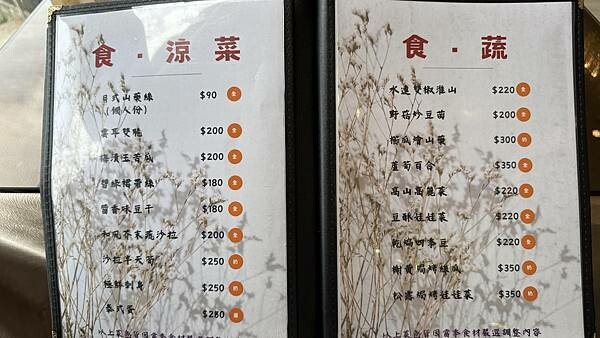 食・涼菜
日式山藥綠 $90 全
(個人份)
雲耳雙脆 $200 全
梅漬玉苦瓜 $200 全
$180 全
醬香味豆干 $180 全
和風芥末蔬沙拉 $200 全
沙拉半天筍 $250 奶
極鮮刺身 $250
泰式 $280
以上菜色皆因當季食材嚴選調整內容
食・蔬
水蓮雙椒淮山 $220 全
野菇炒豆苗 $200 全
瓜燴山藥 $300 奶
蘆筍百合 $350 全
高山高麗菜 $220 全
豆酥娃娃菜 $220 全
乾煸四季豆 $220 全
焗烤絲瓜 $350 奶
松露焗烤娃娃菜 $350 奶
以上菜色皆因當季食材嚴選調整內容